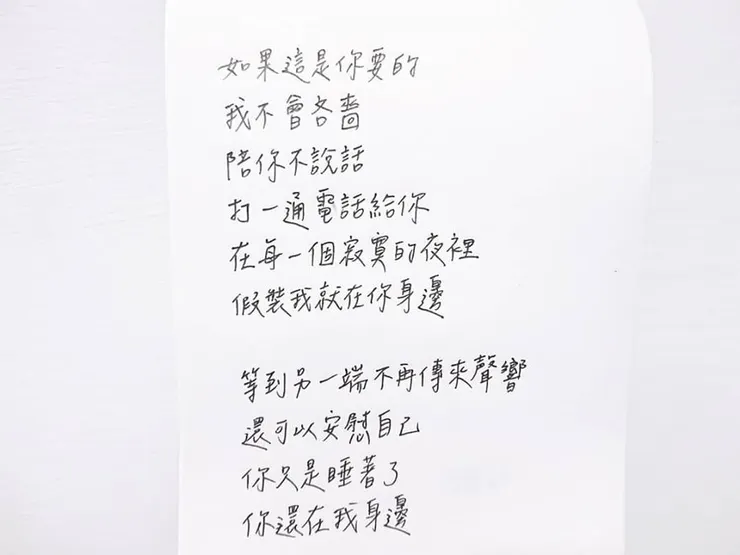 如果這是你要的
我不會吝嗇
陪你不說話
打一通電話給你
在每一個寂寞的夜裡
假裝我就在你身邊
等到另一端不再傳來聲響
還可以安慰自己
你只是睡著了
你還在我身邊